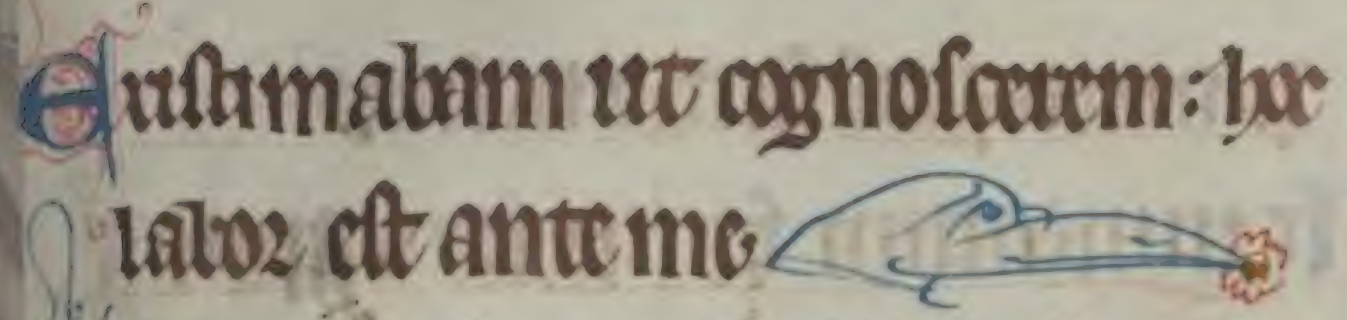 Exiſtimabam ut cognoſcerem: hoc
labor eſt ante me